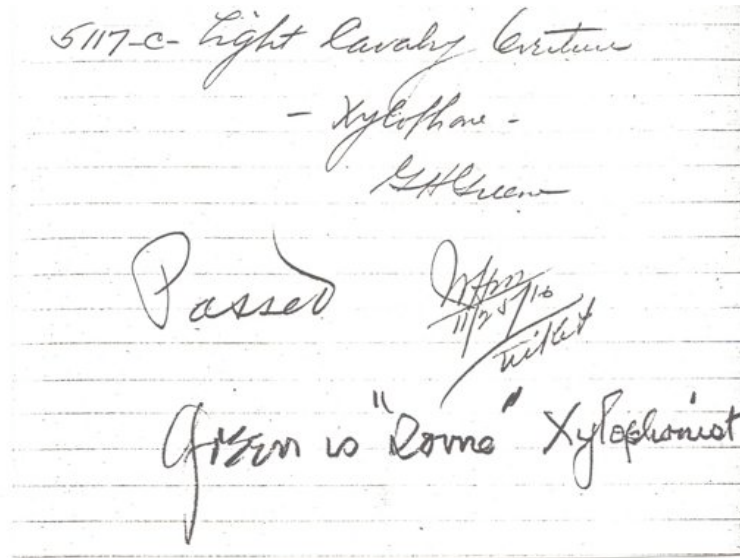 5117-C- Light Cavalry Overture
- Xylophone -
GHGreene
Passed
11/25/16
Green is "Some" Xylophonist